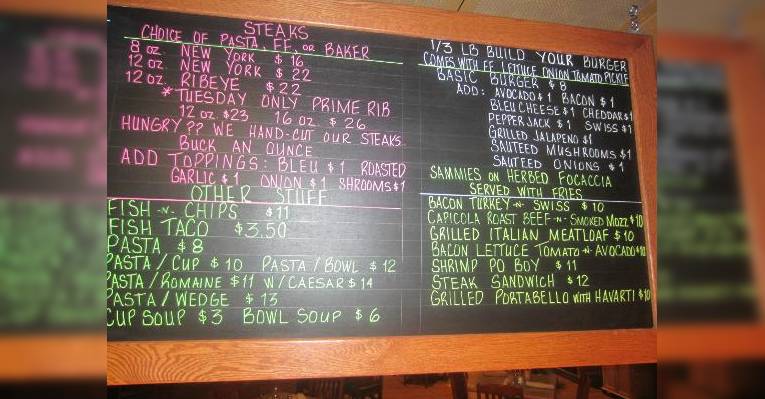 STEAKS
CHOICE OF PASTA, FF, OR BAKER
8 oz. NEW YORK $16
12 oz NEW YORK $22
12 oz. RIBEYE $22
*TUESDAY ONLY PRIME RIB
12 oz $23 16 oz. $26
HUNGRY?? WE HAND-CUT OUR STEAKS
BUCK AN OUNCE
ADD TOPPINGS: BLEU $1 ROASTED
GARLIC $1 ONION $1 SHROOMS $1
OTHER STUFF
FISH -N- CHIPS $11
FISH TACO $3.50
PASTA $8
PASTA/CUP $10 PASTA/BOWL $12
PASTA/ROMAINE $11 W/CAESAR $14
PASTA/WEDGE $13
CUP SOUP $3 BOWL SOUP $6
1/3 LB BUILD YOUR BURGER
COMES WITH FF LETTUCE ONION TOMATO PICKLE
BASIC BURGER $8
ADD: AVOCADO $1 BACON $1
BLEU CHEESE $1 CHEDDAR $1
PEPPER JACK $1 SWISS $1
GRILLED JALAPENO $1
SAUTEED MUSHROOMS $1
SAUTEED ONIONS $1
SAMMIES ON HERBED FOCACCIA
SERVED WITH FRIES
BACON TURKEY -N- SWISS $10
CAPICOLA ROAST BEEF -N- SMOKED MOZZ $10
GRILLED ITALIAN MEATLOAF $10
BACON LETTUCE TOMATO -N- AVOCADO $10
SHRIMP PO BOY $11
STEAK SANDWICH $12
GRILLED PORTABELLO WITH HAVARTI $10